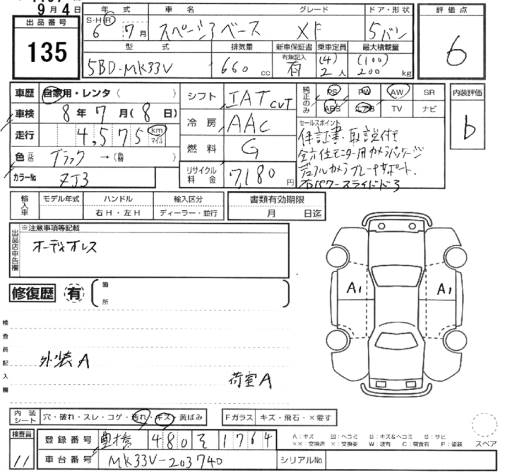 9月4日
出品番号
135
年式 車名 グレード ドア・形状
S・H・R 6年 7月 スペーシアベース XF 5バン
型式 排気量 新車保証書 乗車定員 最大積載量
5BD-MK33V 660cc 有無記入 有 (4) 2人 (100) 200kg
評価点
6
車歴 自家用・レンタ( )
車検 8年7月(8日)
走行 4,575 km マイル
色 ブラック →
カラーNo. ZJ3
シフト IAT CVT
冷房 AAC
燃料 G
リサイクル料金 7,180円
純正のみ PS PW AW SR
ABS エアB TV ナビ
セールスポイント
保証書・取説付
全方位モニター用カメラパッケージ
デュアルカメラブレーキサポート
右パワースライドドア
内装評価
b
輸入車 モデル年式 ハンドル 輸入区分
右H・左H ディーラー・並行
書類有効期限
月 日迄
出品店申告欄
※注意事項等記載
オーディオレス
修復歴 有 箇所
検査員記入欄
外装A
荷室A
A1 A1
内装シート 穴・破れ・スレ・コゲ・汚れ・キズ・黄ばみ
Fガラス キズ・飛石・×要す
検査員
11
登録番号 豊橋 480 を 1764
車台番号 MK33V-203740
シリアルNo.
スペア